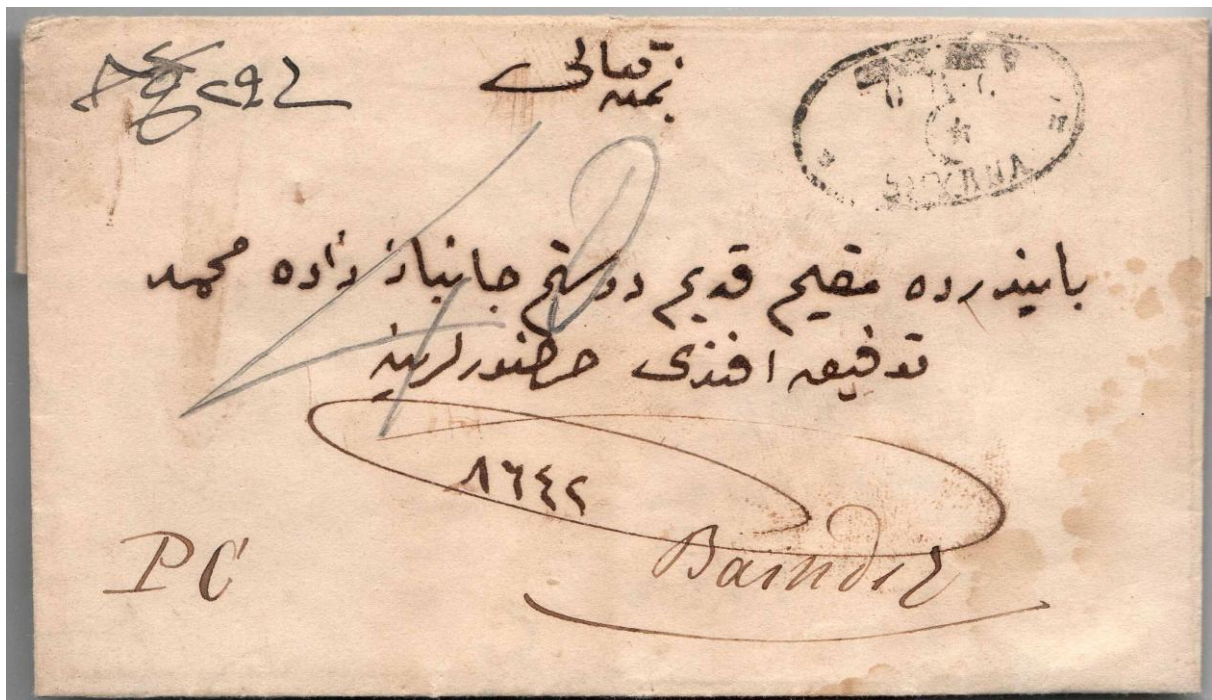 بمنه تعالى
SMYRNA
بایندرده مقیم قدیم دوستم جانباز زاده محمد
توفیق افندی حضورلرینه
٨٦٤٢
PC
Baindir